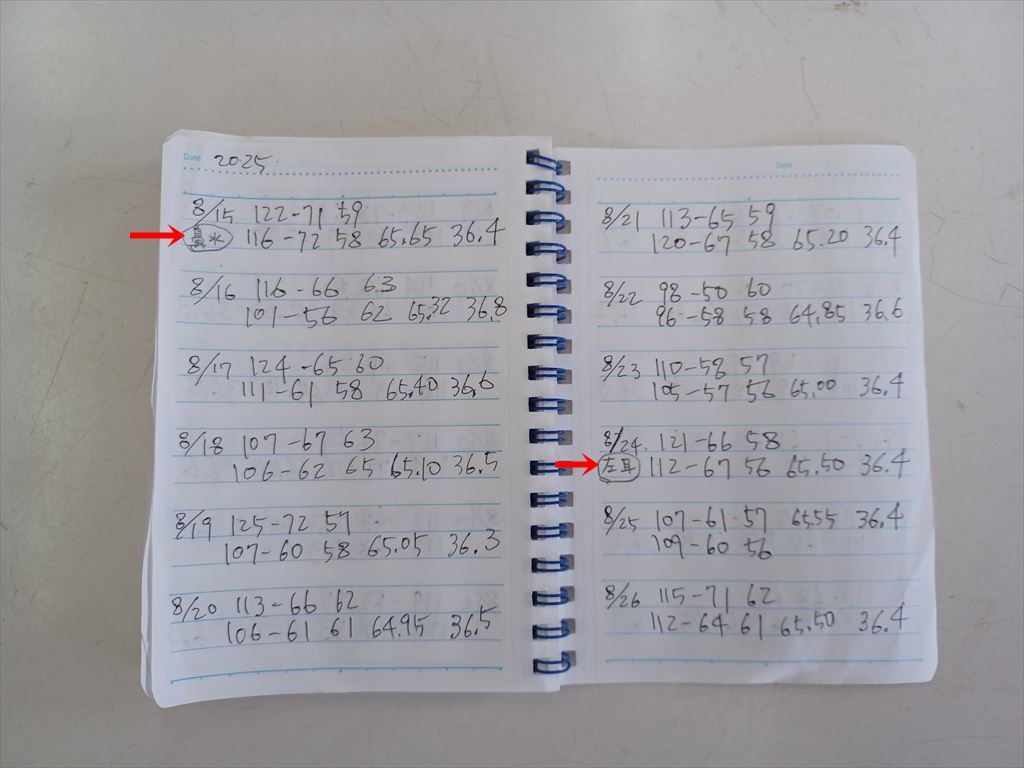 Date 2025.
8/15 122-71 59
水 116-72 58 65.65 36.4
8/16 116-66 63
101-56 62 65.32 36.8
8/17 124-65 60
111-61 58 65.40 36.6
8/18 107-67 63
106-62 65 65.10 36.5
8/19 125-72 57
107-60 58 65.05 36.3
8/20 113-66 62
106-61 61 64.95 36.5
Date
8/21 113-65 59
120-67 58 65.20 36.4
8/22 98-50 60
96-58 58 64.85 36.6
8/23 110-58 57
105-57 56 65.00 36.4
8/24. 121-66 58
左耳 112-67 56 65.50 36.4
8/25 107-61 57 65.55 36.4
109-60 56
8/26 115-71 62
112-64 61 65.50 36.4